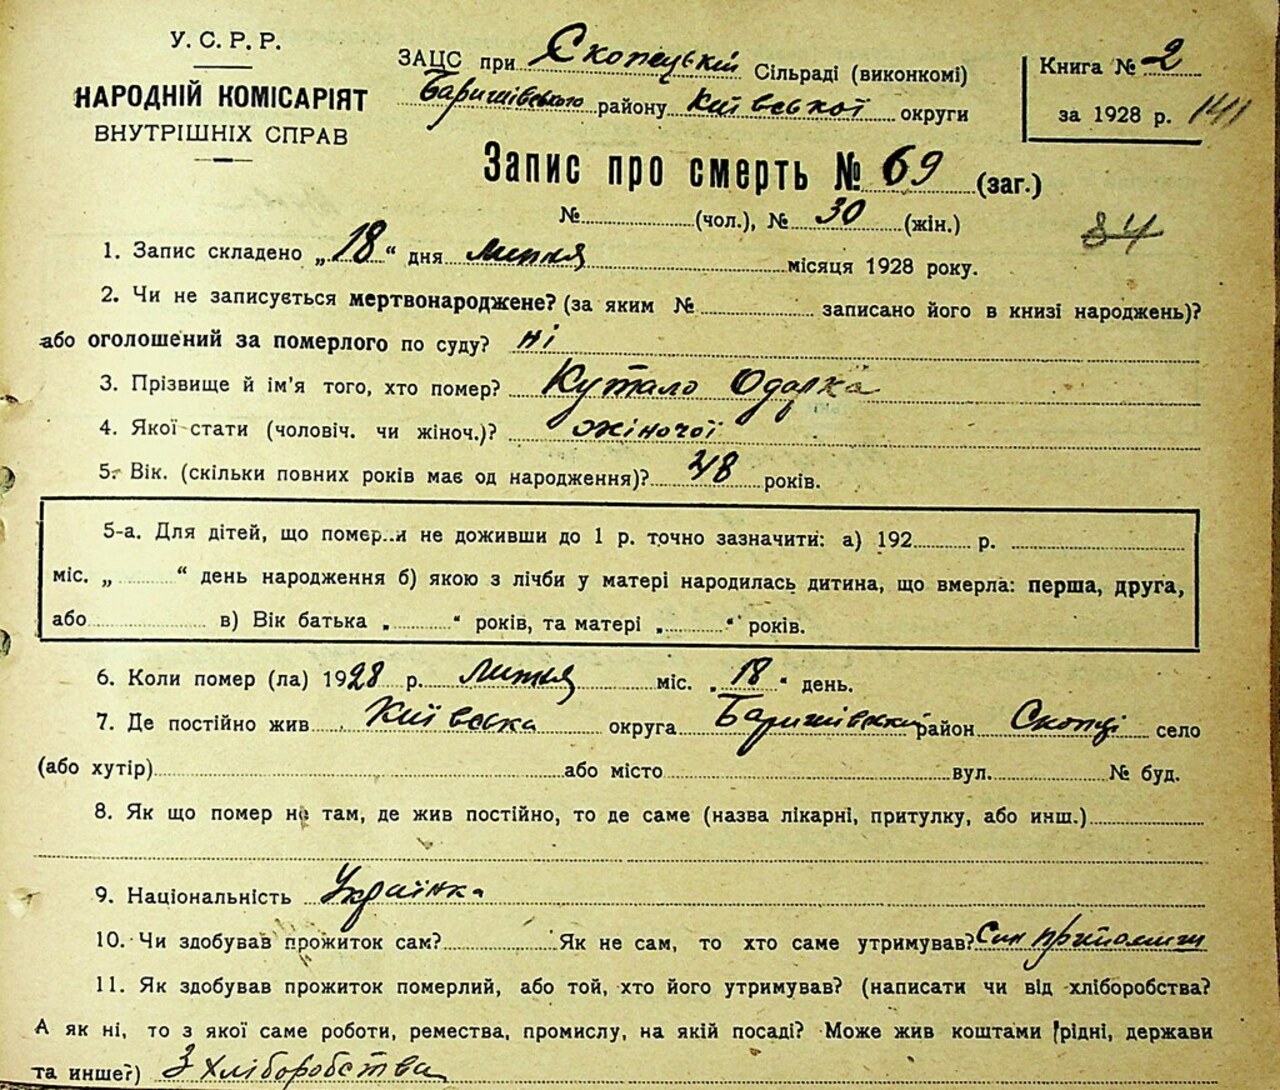 У. С. Р. Р.
НАРОДНІЙ КОМІСАРІЯТ
ВНУТРІШНІХ СПРАВ
ЗАЦС при Скопецькій Сільраді (виконкомі)
Баришівського району Київської округи
Книга № 2
за 1928 р. 141
Запис про смерть № 69 (заг.)
№ (чол.), № 30 (жін.)
84
1. Запис складено „18“ дня липня місяця 1928 року.
2. Чи не записується мертвонароджене? (за яким № записано його в книзі народжень)?
або оголошений за померлого по суду? ні
3. Прізвище й ім'я того, хто помер? Кутало Одарка
4. Якої стати (чоловіч. чи жіноч.)? жіночої
5. Вік. (скільки повних років має од народження)? 48 років.
5-а. Для дітей, що помер..и не доживши до 1 р. точно зазначити: а) 192 р.
міс. „ “ день народження б) якою з лічби у матері народилась дитина, що вмерла: перша, друга,
або в) Вік батька „ “ років, та матері „ “ років.
6. Коли помер (ла) 1928 р. липня міс. „18“ день.
7. Де постійно жив Київська округа Баришівський район Скопці село
(або хутір) або місто вул. № буд.
8. Як що помер не там, де жив постійно, то де саме (назва лікарні, притулку, або инш.)
9. Національність Українка
10. Чи здобував прожиток сам? Як не сам, то хто саме утримував? Син
11. Як здобував прожиток померлий, або той, хто його утримував? (написати чи від хліборобства?
А як ні, то з якої саме роботи, ремества, промислу, на якій посаді? Може жив коштами рідні, держави
та инше?) З хліборобства